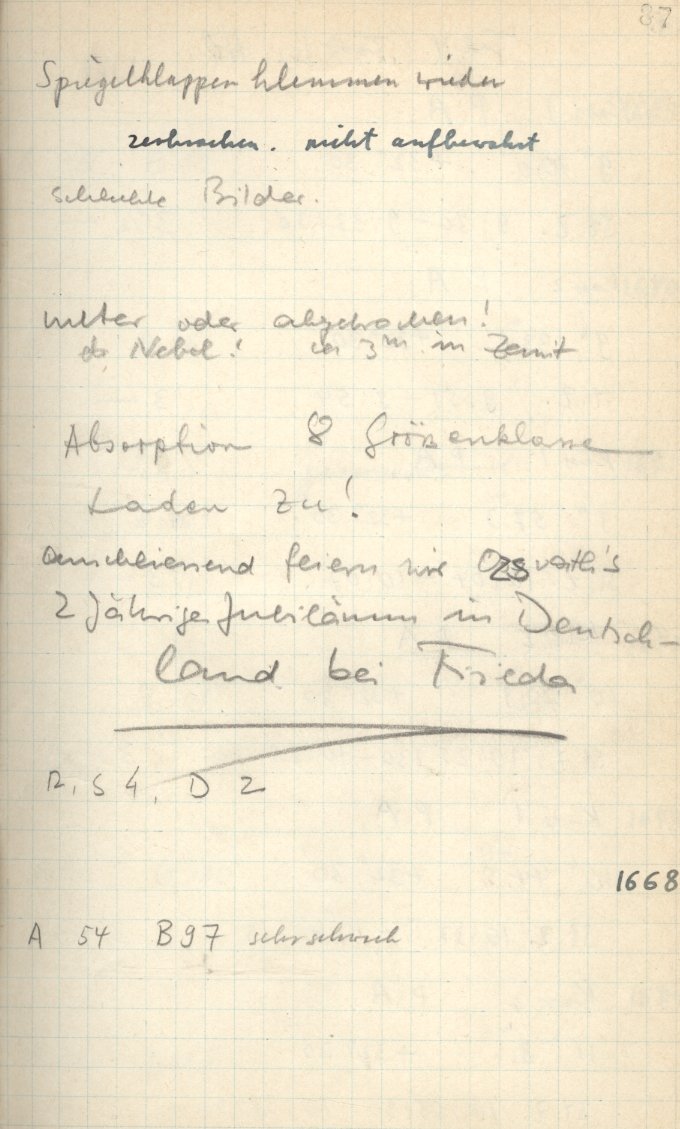 87
Spiegelklappen klemmen wieder
zerbrochen. nicht aufbewahrt
schlechte Bilder.
weiter oder abgebrochen!
da Nebel! in 3m im Zenit
Absorption 8 Größenklasse
Laden zu!
anschliessend feiern wir Ozsvath's
2 Jähriges Jubiläum in Deutsch-
land bei Frieda
R, S 4, D 2
1668
A 54 B97 sehr schwach